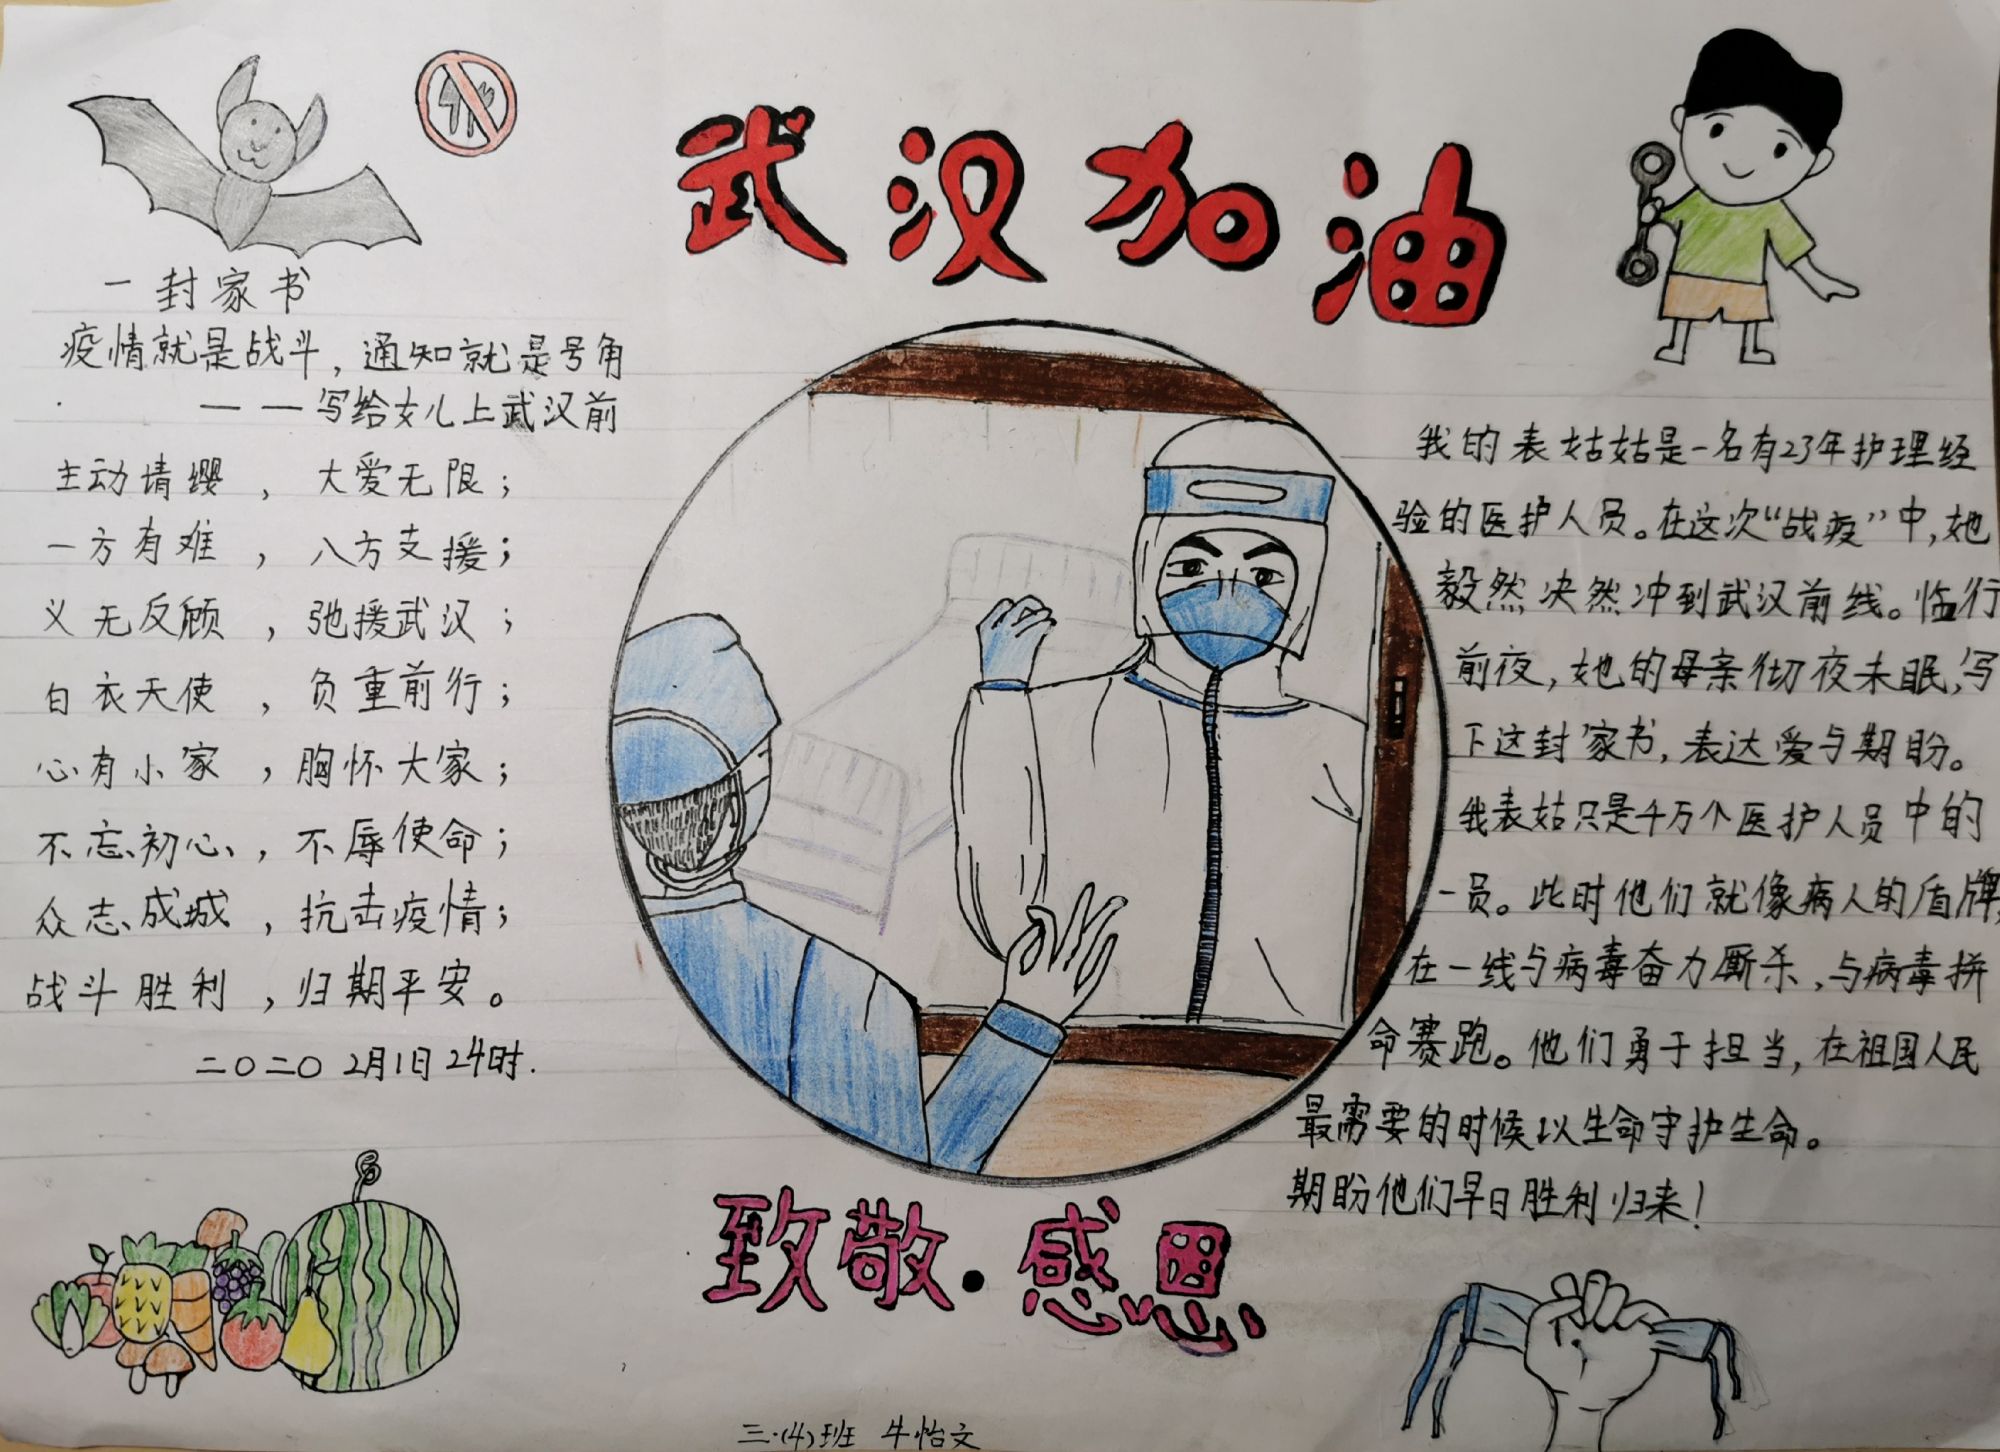 武汉加油
一封家书
疫情就是战斗，通知就是号角
——写给女儿上武汉前
主动请缨，大爱无限；
一方有难，八方支援；
义无反顾，弛援武汉；
白衣天使，负重前行；
心有小家，胸怀大家；
不忘初心，不辱使命；
众志成城，抗击疫情；
战斗胜利，归期平安。
二〇二〇 2月1日24时.
我的表姑姑是一名有23年护理经
验的医护人员。在这次“战疫”中，她
毅然决然冲到武汉前线。临行
前夜，她的母亲彻夜未眠，写
下这封家书，表达爱与期盼。
我表姑只是千万个医护人员中的
一员。此时他们就像病人的盾牌，
在一线与病毒奋力厮杀，与病毒拼
命赛跑。他们勇于担当，在祖国人民
最需要的时候以生命守护生命。
期盼他们早日胜利归来！
致敬·感恩
三.(4)班 牛怡文